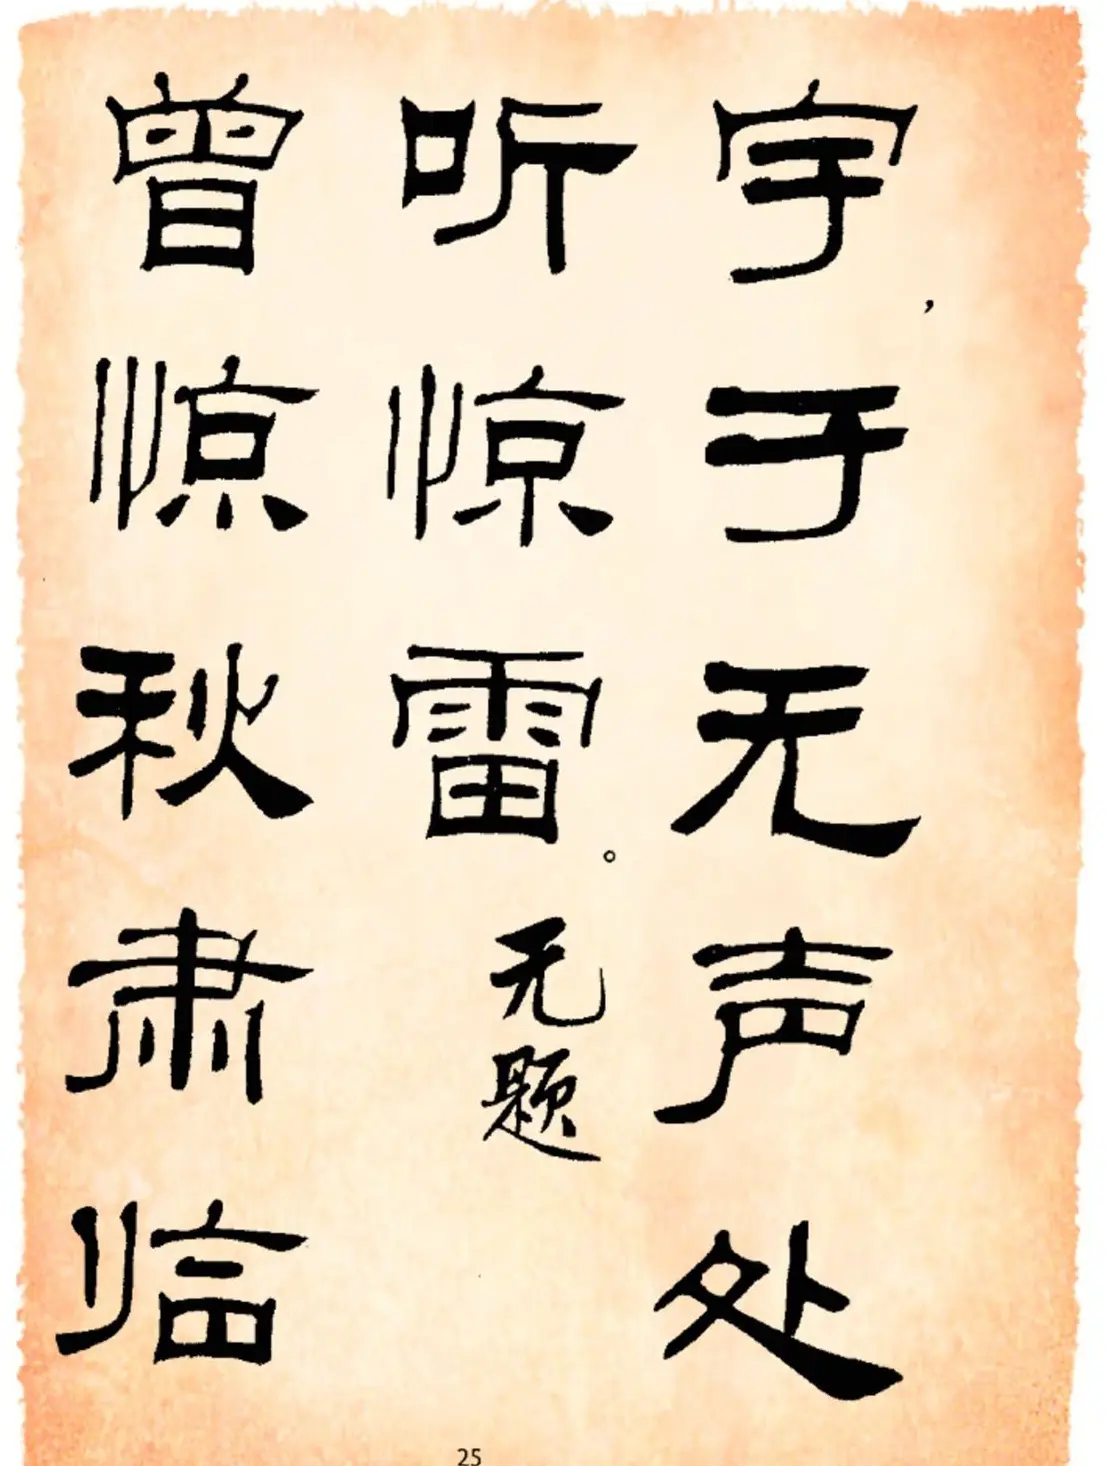 宇，于无声处
听惊雷。无题
曾惊秋肃临
25